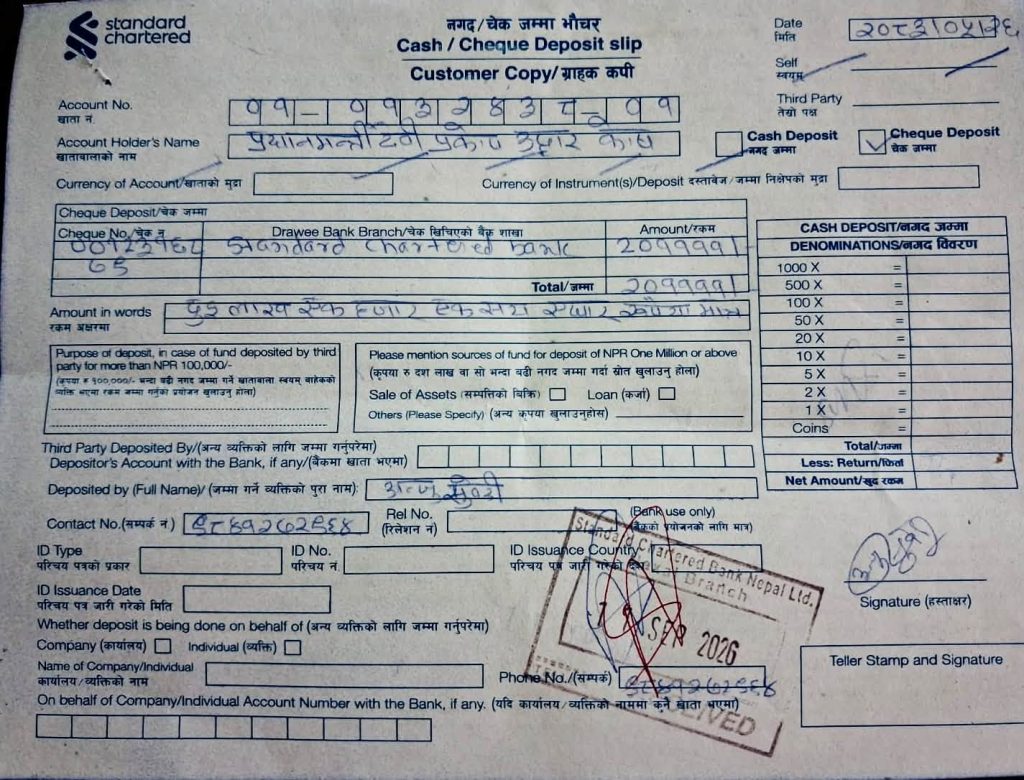 standard chartered
नगद/चेक जम्मा भौचर
Cash / Cheque Deposit slip
Customer Copy/ग्राहक कपी
Date
मिति
Self
स्वयम्
Third Party
तेस्रो पक्ष
Account No.
खाता नं.
Account Holder's Name प्रधानमन्त्री दैवी प्रकोप उद्धार कोष
खातावालाको नाम
Cash Deposit
नगद जम्मा
Cheque Deposit
चेक जम्मा
Currency of Account/खाताको मुद्रा
Currency of Instrument(s)/Deposit दस्तावेज/जम्मा निक्षेपको मुद्रा
Cheque Deposit/चेक जम्मा
Cheque No./चेक न Drawee Bank Branch/चेक खिचिएको बैंक शाखा Amount/रकम
Standard Chartered bank २०११११/-
६९
Total/जम्मा २०११११/-
Amount in words दुई लाख एक हजार एक सय एघार रूपैया मात्र
रकम अक्षरमा
CASH DEPOSIT/नगद जम्मा
DENOMINATIONS/नगद विवरण
1000 X =
500 X =
100 X =
50 X =
20 X =
10 X =
5 X =
2 X =
1 X =
Coins =
Total/जम्मा
Less: Return/फिर्ता
Net Amount/खुद रकम
Purpose of deposit, in case of fund deposited by third
party for more than NPR 100,000/-
(कृपया रु १००,०००/- भन्दा बढी नगद जम्मा गर्ने खातावाला स्वयम् बाहेकको
व्यक्ति भएमा रकम जम्मा गर्नुको प्रयोजन खुलाउनु होला)
Please mention sources of fund for deposit of NPR One Million or above
(कृपया रु दश लाख वा सो भन्दा बढी नगद जम्मा गर्दा स्रोत खुलाउनु होला)
Sale of Assets (सम्पत्तिको बिक्रि) Loan (कर्जा)
Others (Please Specify) (अन्य कृपया खुलाउनुहोस)
Third Party Deposited By/(अन्य व्यक्तिको लागि जम्मा गर्नुपरेमा)
Depositor's Account with the Bank, if any/(बैंकमा खाता भएमा)
Deposited by (Full Name)/ (जम्मा गर्ने व्यक्तिको पुरा नाम):
Contact No.(सम्पर्क नं.) ९८४१२७२९६४
Rel No.
(रिलेशन नं)
(Bank use only)
(बैंकको प्रयोजनको लागि मात्र)
ID Type
परिचय पत्रको प्रकार
ID No.
परिचय नं.
ID Issuance Country
परिचय पत्र जारी गरेको देश
ID Issuance Date
परिचय पत्र जारी गरेको मिति
Standard Chartered Bank Nepal Ltd.
Branch
SEP 2026
Signature (हस्ताक्षर)
Whether deposit is being done on behalf of (अन्य व्यक्तिको लागि जम्मा गर्नुपरेमा)
Company (कार्यालय) Individual (व्यक्ति)
Name of Company/Individual
कार्यालय/व्यक्तिको नाम
Phone No./(सम्पर्क) ९८४१२७२९६४
Teller Stamp and Signature
On behalf of Company/Individual Account Number with the Bank, if any. (यदि कार्यालय/व्यक्तिको नाममा कुनै खाता भएमा)